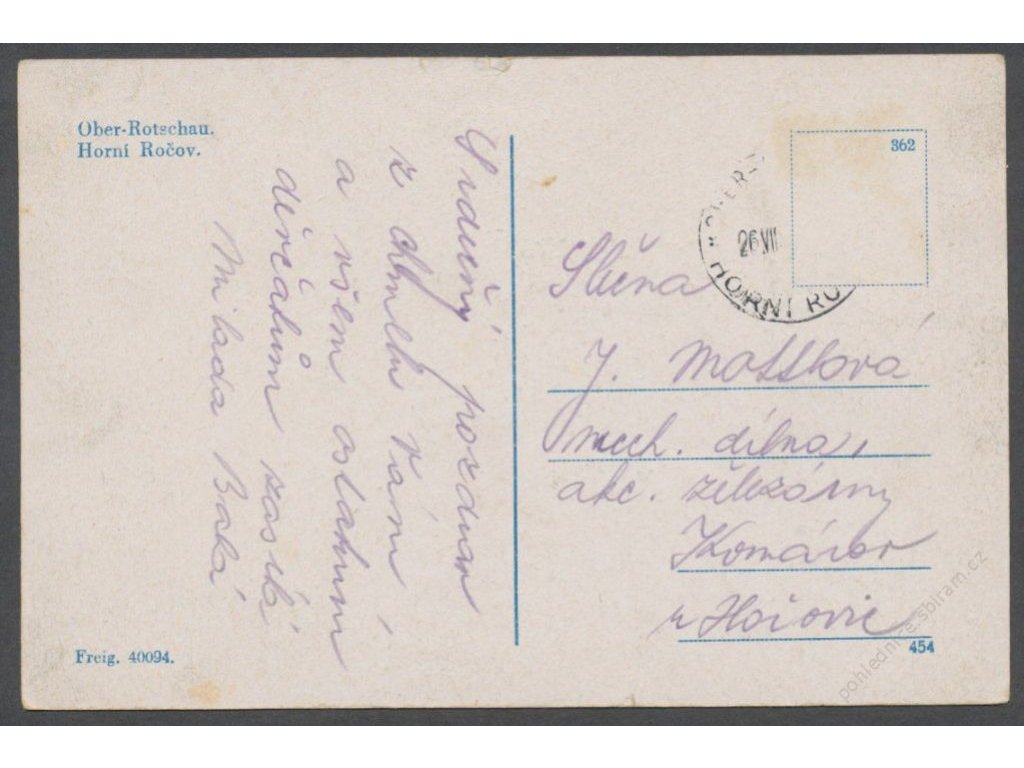 Ober-Rotschau.
Horní Ročov.
Srdečný pozdrav
z výletu Vám i
a všem ostatním
děvčatům zasílá
Milada Babá
Freig. 40094.
362
26 VII
HORNÍ RO
Slečna
J. Mottlová
mech. dílna,
akc. železárny
Komárov
u Hořovic
454
pohlednice.sbiram.cz